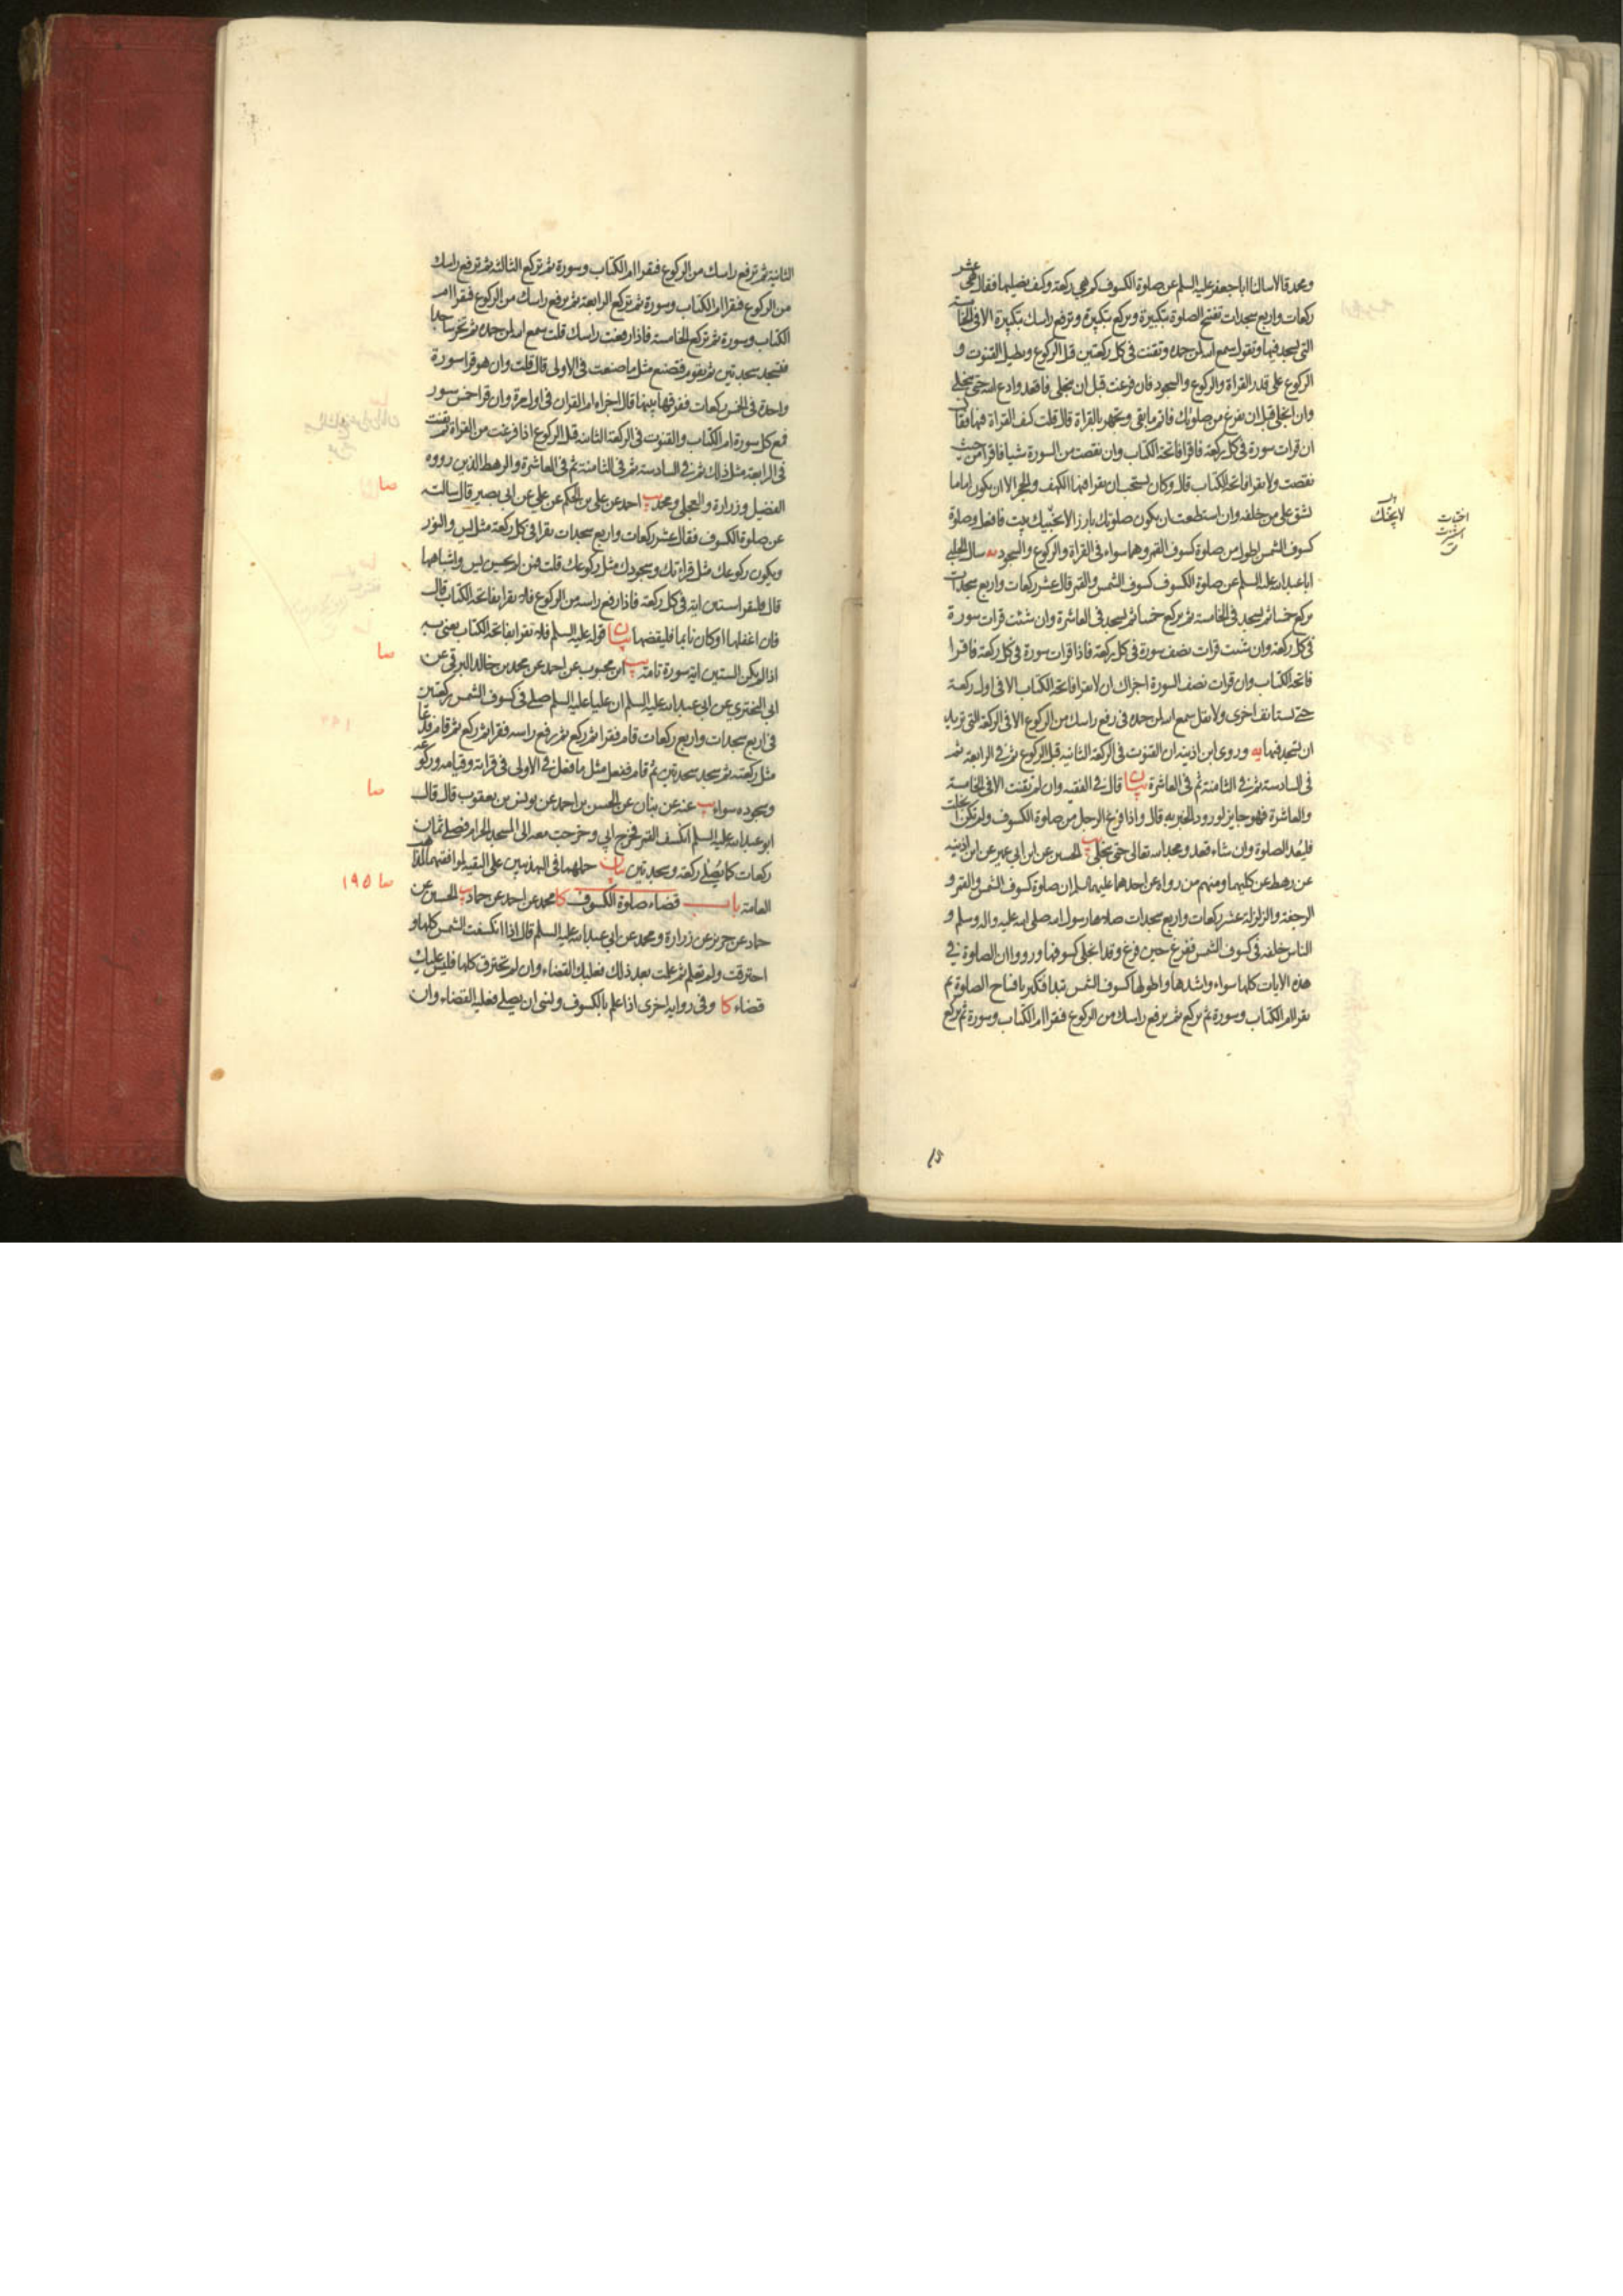 ومحمد قالا سالنا ابا جعفر عليه السلم عن صلوة الكسوف كم هي ركعة وكيف نصليها فقال هي عشر
ركعات واربع سجدات تفتتح الصلوة بتكبيرة وتركع بتكبيرة وترفع راسك بتكبيرة الا في الخامسة
التي تسجد فيها وتقول سمع الله لمن حمده وتقنت في كل ركعتين قبل الركوع وتطيل القنوت و
الركوع على قدر القراة والركوع والسجود فان فرغت قبل ان ينجلى فاقعد وادع الله حتى ينجلي
وان انجلى قبل ان تفرغ من صلوتك فاتم ما بقى وتجهر بالقراة قال قلت كيف القراة فيها فقال
ان قرات سورة في كل ركعة فاقرا فاتحة الكتاب وان نقصت من السورة شيا فاقرا من حيث
نقصت ولا تقرا فاتحة الكتاب قال وكان يستحب ان يقرا فيها الكهف والحجر الا ان يكون اماما
يشق على من خلفه وان استطعت ان يكون صلوتك بارزا لا يجنك بيت فافعل وصلوة
كسوف الشمس اطول من صلوة كسوف القمر وهما سواء في القراة والركوع والسجود يه سال الحلبي
ابا عبد الله عليه السلم عن صلوة الكسوف كسوف الشمس والقمر قال عشر ركعات واربع سجدات
يركع خمسا ثم يسجد في الخامسة ثم يركع خمسا ثم يسجد في العاشرة وان شئت قرات سورة
في كل ركعة وان شئت قرات نصف سورة في كل ركعة فاذا قرات سورة في كل ركعة فاقرا
فاتحة الكتاب وان قرات نصف السورة اجزاك ان لا تقرا فاتحة الكتاب الا في اول ركعة
حتى تستانف اخرى ولا تقل سمع الله لمن حمده في رفع راسك من الركوع الا في الركعة التي تريد
ان تسجد فيها يه وروى ابن اذينه ان القنوت في الركعة الثانية قبل الركوع ثم في الرابعة ثم
في السادسة ثم في الثامنة ثم في العاشرة بيان قال في الفقيه وان لم تقنت الا في الخامسة
والعاشرة فهو جايز لورود الخبر به قال واذا فرغ الرجل من صلوة الكسوف ولم تكن انجلت
فليعد الصلوة وان شاء قعد ومجد الله تعالى حتى ينجلي يب الحسين عن ابن ابي عمير عن ابن اذينه
عن رهط عن كليهما ومنهم من رواه عن احدهما عليهما السلم ان صلوة كسوف الشمس والقمر و
الرجفة والزلزلة عشر ركعات واربع سجدات صلاها رسول الله صلى الله عليه واله وسلم و
الناس خلفه في كسوف الشمس ففرغ حين فرغ وقد انجلى كسوفها ورووا ان الصلوة في
هذه الايات كلها سواء واشدها واطولها كسوف الشمس تبدا فتكبر بافتتاح الصلوة ثم
تقرا ام الكتاب وسورة ثم تركع ثم ترفع راسك من الركوع فتقرا ام الكتاب وسورة ثم تركع
لا يجنك
الثانية ثم ترفع راسك من الركوع فتقرا ام الكتاب وسورة ثم تركع الثالثة ثم ترفع راسك
من الركوع فتقرا ام الكتاب وسورة ثم تركع الرابعة ثم ترفع راسك من الركوع فتقرا ام
الكتاب وسورة ثم تركع الخامسة فاذا رفعت راسك قلت سمع الله لمن حمده ثم تخر ساجدا
فتسجد سجدتين ثم تقوم فتصنع مثل ما صنعت في الاولى قال قلت وان هو قرا سورة
واحدة في الخمس ركعات ففرقها بينها قال اجزاه ام القران في اول مرة وان قرا خمس سور
فمع كل سورة ام الكتاب والقنوت في الركعة الثانية قبل الركوع اذا فرغت من القراة ثم تقنت
في الرابعة مثل ذلك ثم في السادسة ثم في الثامنة ثم في العاشرة والرهط الذين رووه
الفضيل وزرارة والعجلي ومحمد يب احمد عن علي بن الحكم عن علي عن ابي بصير قال سالته
عن صلوة الكسوف فقال عشر ركعات واربع سجدات يقرا في كل ركعة مثل يس والنور
ويكون ركوعك مثل قراءتك وسجودك مثل ركوعك قلت فمن لم يحسن يس واشباهها
قال فليقرا ستين اية في كل ركعة فاذا رفع راسه من الركوع فلا يقرا بفاتحة الكتاب قال
فان اغفلها او كان نايما فليقضها بيان قوله عليه السلم فلا تقرا بفاتحة الكتاب يعنى به
اذا لم يكن الستين اية سورة تامة يب ابن محبوب عن احمد عن محمد بن خالد البرقي عن
ابي البختري عن ابي عبد الله عليه السلم ان عليا عليه السلم صلى في كسوف الشمس ركعتين
في اربع سجدات واربع ركعات قام فقرا ثم ركع ثم رفع راسه فقرا ثم ركع ثم قام فدعا
مثل ركعته ثم سجد سجدتين ثم قام ففعل مثل ما فعل في الاولى في قراءته وقيامه وركوعه
وسجوده سواء يب عنه عن بنان عن المحسن بن احمد عن يونس بن يعقوب قال قال
ابو عبد الله عليه السلم انكسف القمر فخرج ابي وخرجت معه الى المسجد الحرام فصلى ثمان
ركعات كما يصلي ركعة وسجدتين بيان حملهما في التهذيبين على التقية لموافقتهما لمذاهب
العامة باب قضاء صلوة الكسوف كا محمد عن احمد عن حماد يب الحسين عن
حماد عن حريز عن زرارة ومحمد عن ابي عبد الله عليه السلم قال اذا انكسفت الشمس كلها و
احترقت ولم تعلم ثم علمت بعد ذلك فعليك القضاء وان لم تحترق كلها فليس عليك
قضاء كا وفي رواية اخرى اذا علم بالكسوف ونسى ان يصلي فعليه القضاء وان
صا
صا
صا
صا ١٩٥